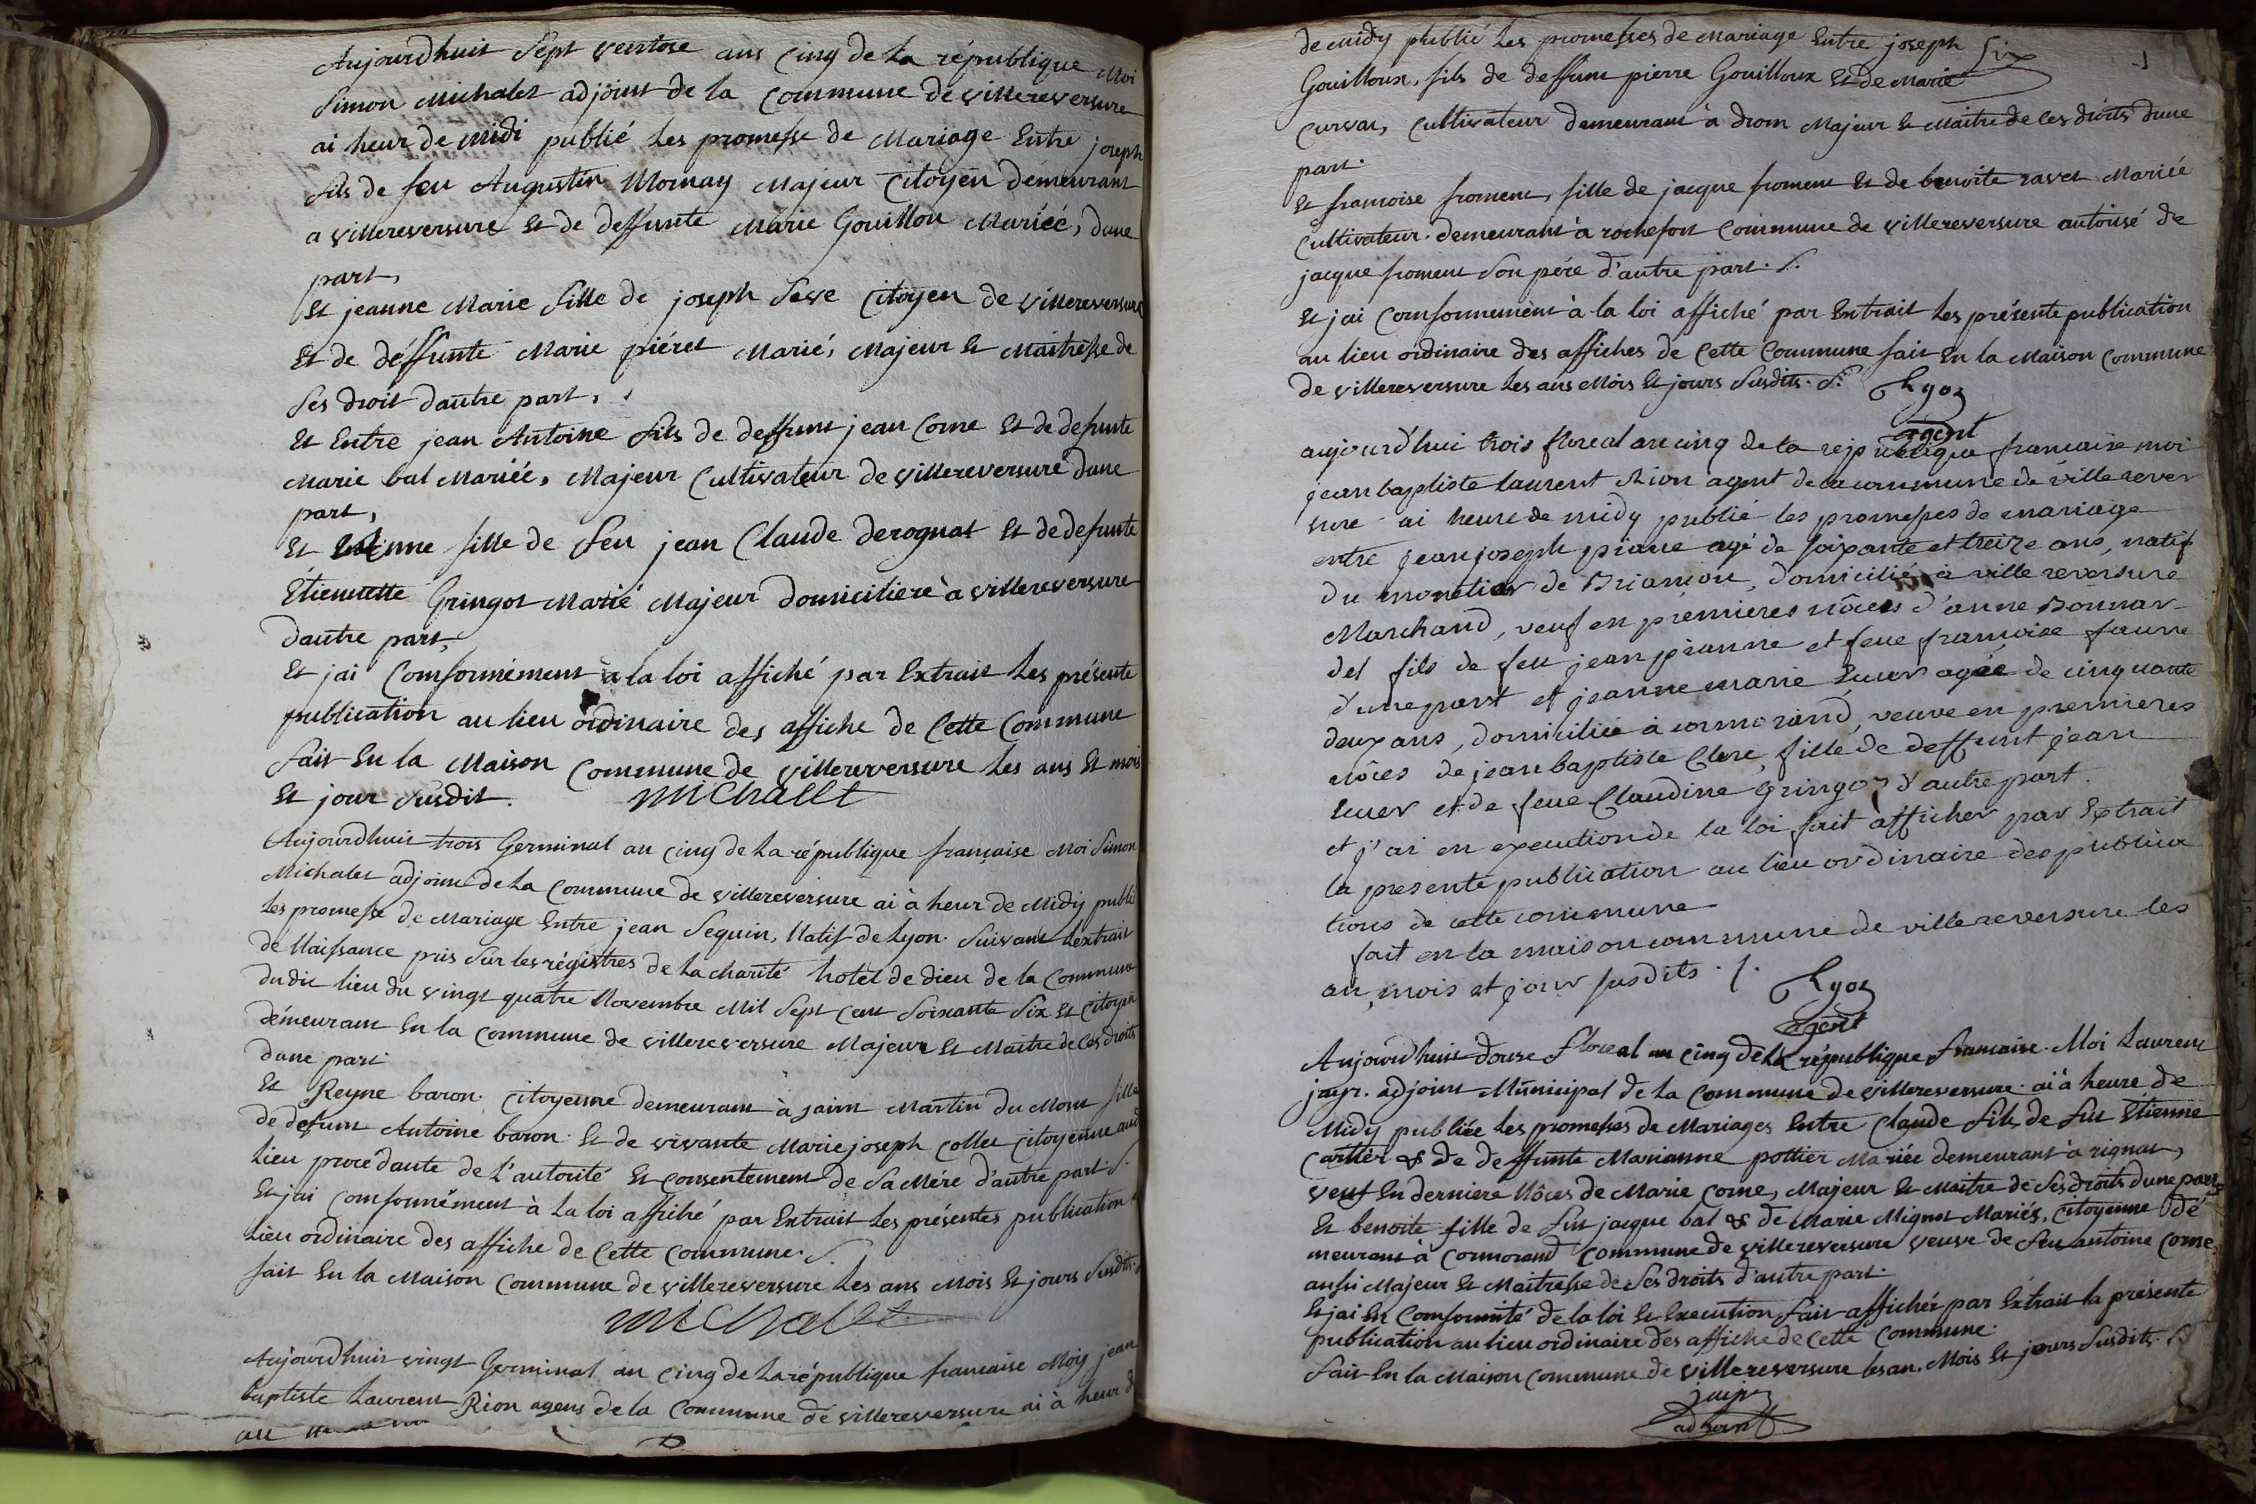 Aujourdhuit Sept ventose ans cinq de La république Moi
Simon Michalet adjoint de la Commune de villereversure
ai heur de Midi publié Les promesse de Mariage Entre joseph
fils de feu Augustin Mornay Majeur Citoyen demeurant
a villereversure Et de deffunte Marie Gouillon Mariéé, dune
part,
Et jeanne Marie fille de joseph Seve Citoyen de villereversure
Et de deffunte Marie piéret Marié, Majeur Et Maitresse de
Ses droit dautre part,
Et Entre jean Antoine fils de deffunt jean Corne Et de defunte
Marie bal Mariéé, Majeur Cultivateur de villereversure dune
part,
Et fille de feu jean Claude derognat Et de defunte
Étiennette Gringot Marié Majeur domiciliere à villereversure
dautre part,
Et jai Conformément à la loi affiché par Extrait Les présente
publication au lieu ordinaire des affiche de Cette Commune
fait En la Maison Commune de villereversure Les ans Et mois
Et jour Susdit. Michallt
Aujourdhuit trois Germinal an cinq de La république française Moi Simon
Michalet adjoint de La Commune de villereversure ai à heur de Midy publié
Les promesse de Mariage Entre jean Seguin, Natif de Lyon. Suivant Lextrait
de Naissance pris Sur les régistres de La charité hotel de dieu de la Commune
dudit lieu du vingt quatre Novembre Mil Sept Cent Soixante Six Et Citoyen
démeurant En la Commune de villereversure Majeur Et Maitre de Ces droits
dune part
Et Reyne baron. Citoyenne demeurant à saint Martin du Mont fille
de defunt Antoine baron. Et de vivante Marie joseph Collet Citoyenne aud
Lieu procédante de L'autorité Et consentement de Sa Mére d'autre part S.
Et jai conformément à La loi affiché par Extrait Les présentes publication a
Lieu ordinaire des affiche de Cette Commune. S.
fait En la Maison Commune de villereversure Les ans Mois Et jours Susdit.
Michallt
Aujourdhuit vingt Germinal an Cinq de La république francaise Moiy jean
baptiste Laurent Rion agent de la Commune de villereversure ai à heur d
de Midy publié Les promesses de Mariage Entre joseph Six
Gouilloux, fils de deffunt pierre Gouilloux Et de Marie
Curvat, Cultivateur demeurant à drom Majeur Et Maitre de Ces droits dune
part.
Et francoise froment, fille de jacque froment Et de benoite ravet Mariéé
Cultivateur. demeurant à rochefort Commune de villereversure autorisé de
jacque froment Son pére d'autre part. S.
Et jai Conformémént à la loi affiché par Extrait Les présente publication
au lieu ordinaire des affiches de Cette Commune fait En la Maison Commune
de villereversure Les ans Mois Et jours Susdits. S.
agent
aujourd'hui trois floreal an cinq de la republique francaise moi
jean baptiste laurent Rion agent de la commune de villerever
sure ai heure de midy publié les promesses de mariage
entre jean joseph piane agé de soixante et treize ans, natif
du monetier de Briancon, domicilié à villereversure
Marchand, veuf en premieres nôces d'anne Bonnar-
det fils de feu jean pianne et feue francoise faure
d'une part et jeanne marie agée de cinquante
deux ans, domiciliée à cormorand, veuve en premieres
nôces de jean baptiste Clerc, fille de deffunt jean
et de feue Claudine gringoz d'autre part.
et j'ai en execution de la loi fait afficher par Extrait
la presente publication au lieu ordinaire des publica
tions de cette commune
fait en la maison commune de villereversure les
an, mois et jour susdits. /.
agent
Aujourdhuit douse floreal an cinq de La république francaise. Moi Laurent
jayr. adjoint Municipal de la Commune de villereversure. ai à heure de
Midy publiée Les promesses de Mariages Entre Claude fils de fut Etienne
Cartier & de deffunte Marianne pottier Mariée demeurant à rignat,
veuf En derniere Nôces de Marie Corne, Majeur Et Maitre de Ses droits dune part
Et benoite fille de fut jacque bal & de Marie Mignot Mariés, Citoyenne dé
meurant à Cormorand Commune de villereversure veuve de feu antoine Corne
aussi Majeur Et Maitresse de Ses droits d'autre part.
Et jai En Conformité de la loi Et Execution fait affichér par Extrait la présente
publication au lieu ordinaire des affiche de Cette Commune.
fait En la Maison Commune de villereversure les an. Mois Et jours Susdits. S.
jayr
adjoint